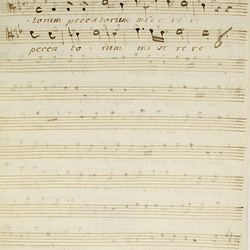 torum peccatorum mise re re
pecca to rum mi se re re